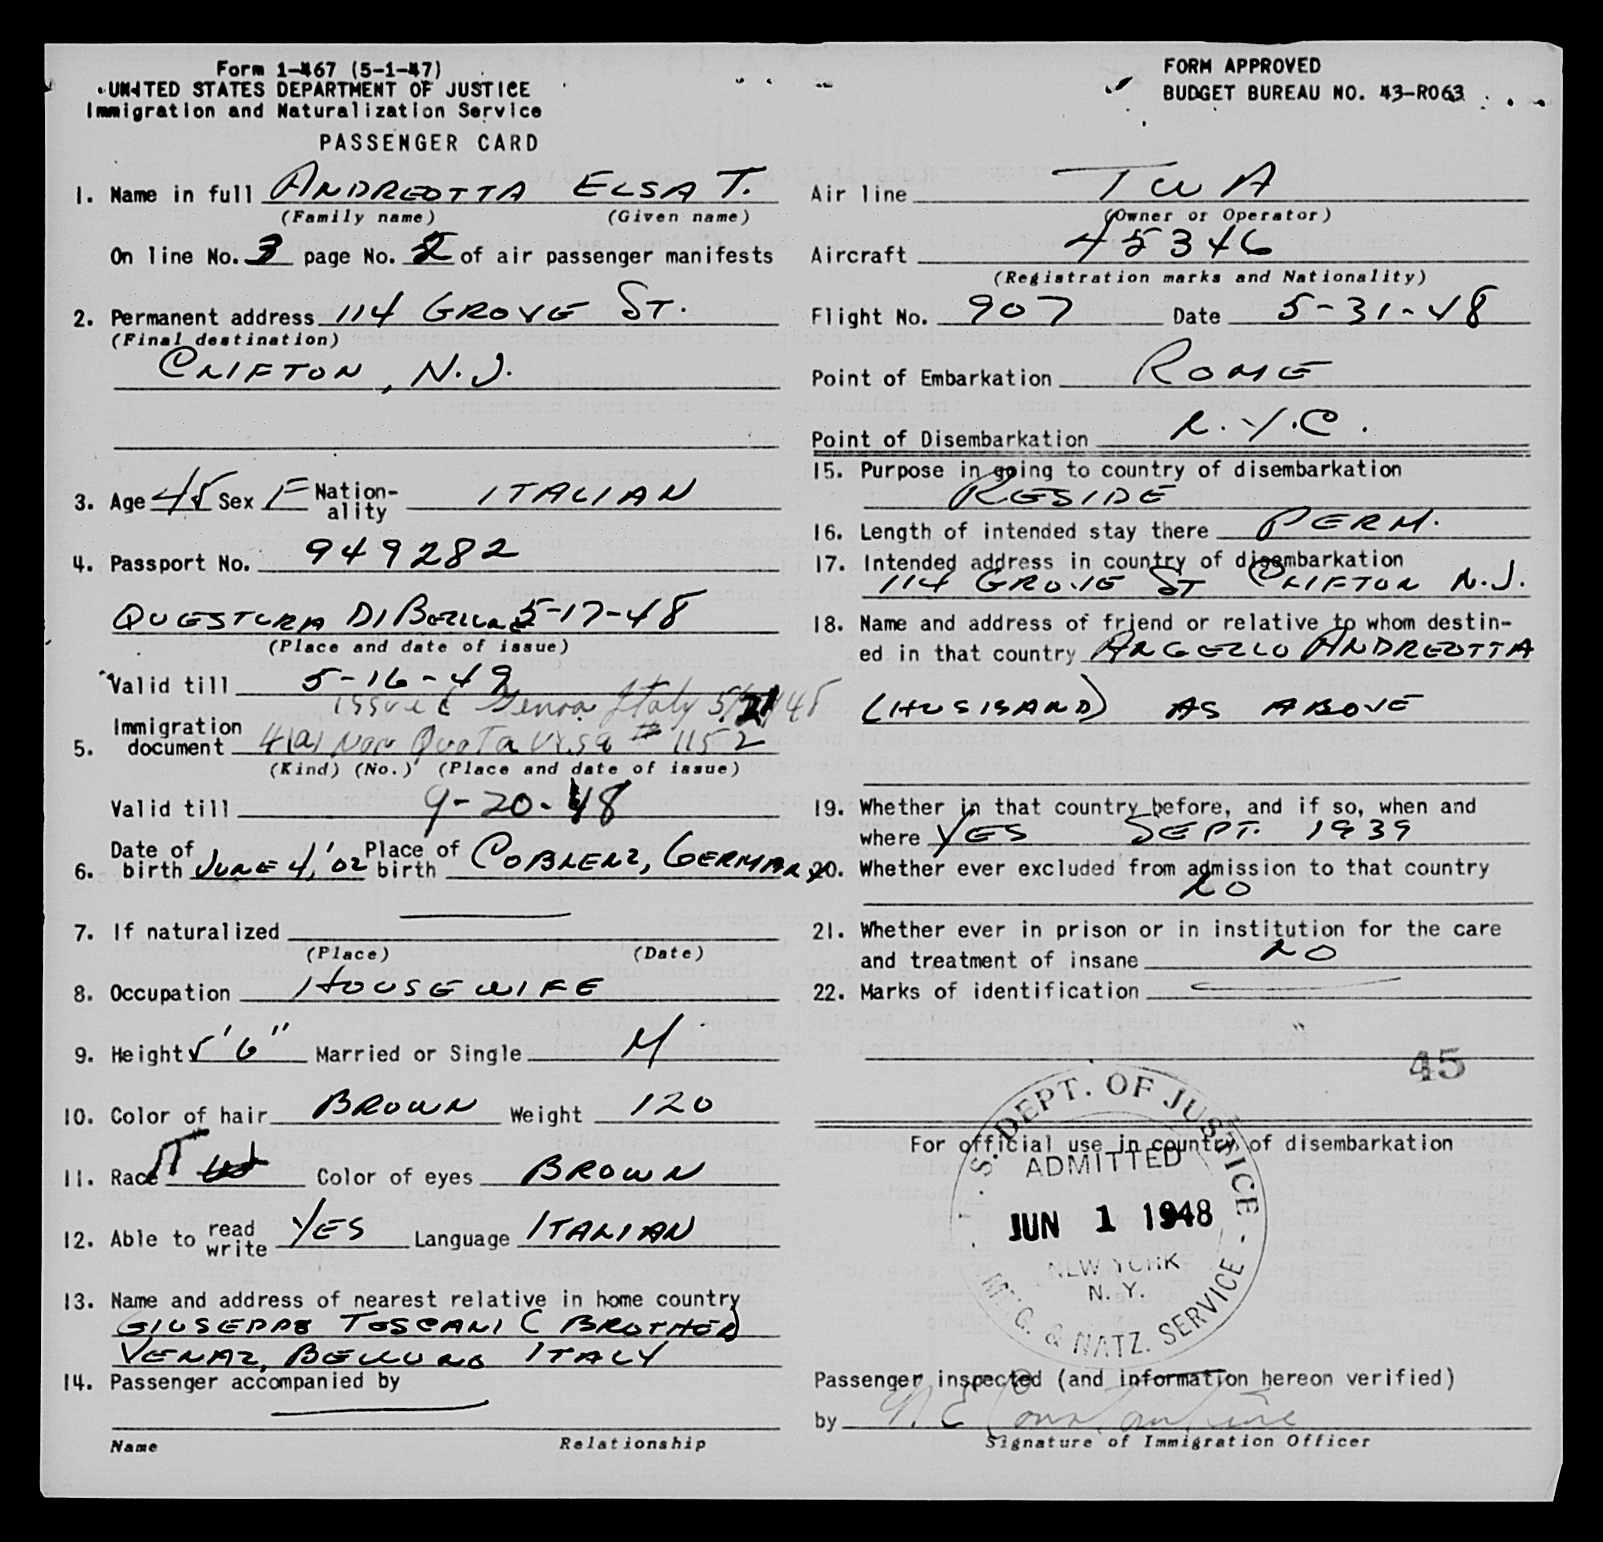 Form 1-467 (5-1-47)
UNITED STATES DEPARTMENT OF JUSTICE
Immigration and Naturalization Service
PASSENGER CARD
FORM APPROVED
BUDGET BUREAU NO. 43-R063
1. Name in full ANDREOTTA ELSA T.
(Family name) (Given name)
On line No. 3 page No. 2 of air passenger manifests
2. Permanent address 114 GROVE ST.
(Final destination)
CLIFTON, N.J.
3. Age 45 Sex F Nation-ality ITALIAN
4. Passport No. 949282
QUESTURA DI BELLUNO 5-17-48
(Place and date of issue)
Valid till 5-16-49
issued Genoa Italy
5. Immigration document 4(a) Non Quota Visa # 1152
(Kind) (No.) (Place and date of issue)
Valid till 9-20-48
6. Date of birth JUNE 4, '02 Place of birth COBLENZ, GERMANY
7. If naturalized
(Place) (Date)
8. Occupation HOUSEWIFE
9. Height 5'6" Married or Single M
10. Color of hair BROWN Weight 120
11. Race Color of eyes BROWN
12. Able to read write YES Language ITALIAN
13. Name and address of nearest relative in home country
GIUSEPPE TOSCANI (BROTHER)
VENAZ, BELLUNO ITALY
14. Passenger accompanied by
Name Relationship
Air line TWA
(Owner or Operator)
Aircraft 45346
(Registration marks and Nationality)
Flight No. 907 Date 5-31-48
Point of Embarkation ROME
Point of Disembarkation N.Y.C.
15. Purpose in going to country of disembarkation
RESIDE
16. Length of intended stay there PERM.
17. Intended address in country of disembarkation
114 GROVE ST CLIFTON N.J.
18. Name and address of friend or relative to whom destin-
ed in that country ANGELLO ANDREOTTA
(HUSBAND) AS ABOVE
19. Whether in that country before, and if so, when and
where YES SEPT. 1939
20. Whether ever excluded from admission to that country
NO
21. Whether ever in prison or in institution for the care
and treatment of insane NO
22. Marks of identification
45
For official use in country of disembarkation
U.S. DEPT. OF JUSTICE
ADMITTED
JUN 1 1948
NEW YORK
N. Y.
IMMIG. & NATZ. SERVICE
Passenger inspected (and information hereon verified)
by
Signature of Immigration Officer